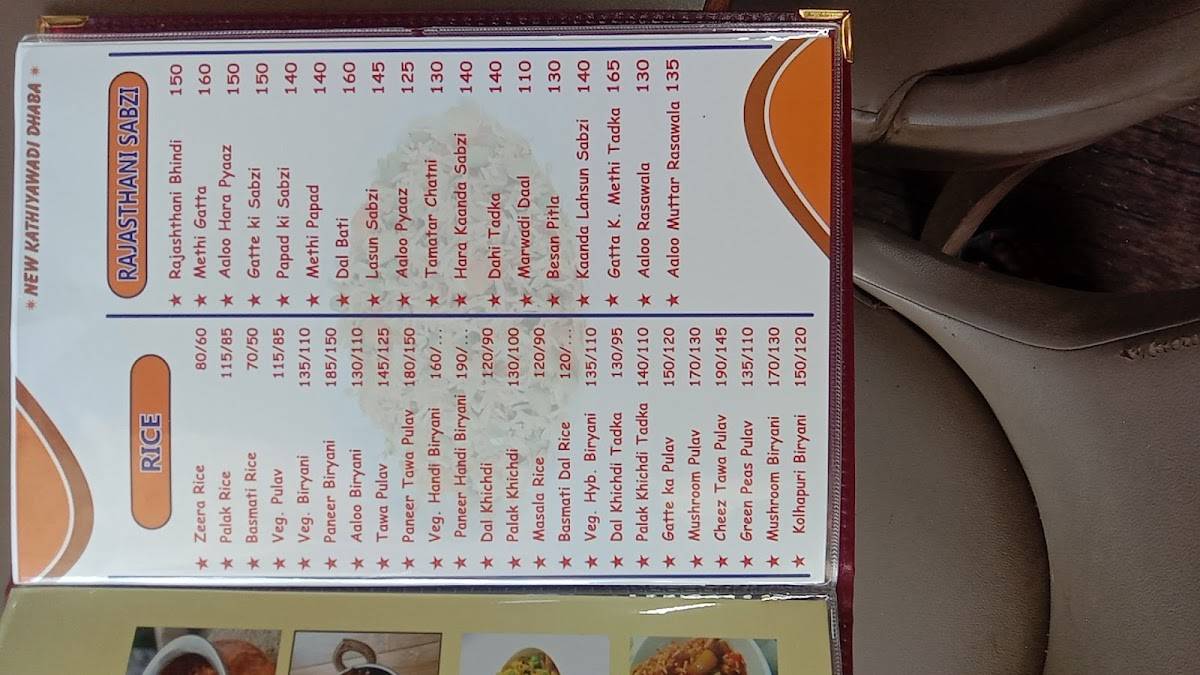 * NEW KATHIYAWADI DHABA *
RICE
★ Zeera Rice 80/60
★ Palak Rice 115/85
★ Basmati Rice 70/50
★ Veg. Pulav 115/85
★ Veg. Biryani 135/110
★ Paneer Biryani 185/150
★ Aaloo Biryani 130/110
★ Tawa Pulav 145/125
★ Paneer Tawa Pulav 180/150
★ Veg. Handi Biryani 160/...
★ Paneer Handi Biryani 190/...
★ Dal Khichdi 120/90
★ Palak Khichdi 130/100
★ Masala Rice 120/90
★ Basmati Dal Rice 120/...
★ Veg. Hyb. Biryani 135/110
★ Dal Khichdi Tadka 130/95
★ Palak Khichdi Tadka 140/110
★ Gatte ka Pulav 150/120
★ Mushroom Pulav 170/130
★ Cheez Tawa Pulav 190/145
★ Green Peas Pulav 135/110
★ Mushroom Biryani 170/130
★ Kolhapuri Biryani 150/120
RAJASTHANI SABZI
★ Rajashthani Bhindi 150
★ Methi Gatta 160
★ Aaloo Hara Pyaaz 150
★ Gatte ki Sabzi 150
★ Papad ki Sabzi 140
★ Methi Papad 140
★ Dal Bati 160
★ Lasun Sabzi 145
★ Aaloo Pyaaz 125
★ Tamatar Chatni 130
★ Hara Kaanda Sabzi 140
★ Dahi Tadka 140
★ Marwadi Daal 110
★ Besan Pitla 130
★ Kaanda Lahsun Sabzi 140
★ Gatta K. Methi Tadka 165
★ Aaloo Rasawala 130
★ Aaloo Muttar Rasawala 135